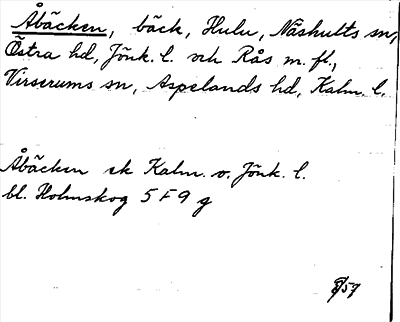 Åbäcken, bäck, Hulu, Näshults sn,
Östra hd, Jönk. l. och Rås m. fl.,
Virserums sn, Aspelands hd, Kalm. l.
Åbäcken ek Kalm. o. Jönk. l.
bl. Holmskog 5 F 9 g
/59